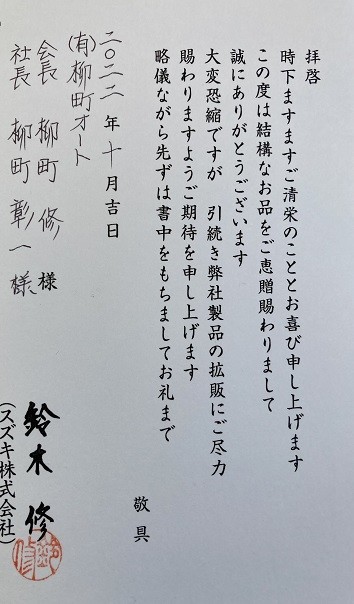 拝啓
時下ますますご清栄のこととお喜び申し上げます
この度は結構なお品をご恵贈賜わりまして
誠にありがとうございます
大変恐縮ですが 引続き弊社製品の拡販にご尽力
賜わりますようご期待を申し上げます
略儀ながら先ずは書中をもちましてお礼まで
敬具
二〇二二年十月吉日
(有)柳町オート
会長 柳町 修 様
社長 柳町 彰一 様
鈴木 修
(スズキ株式会社)